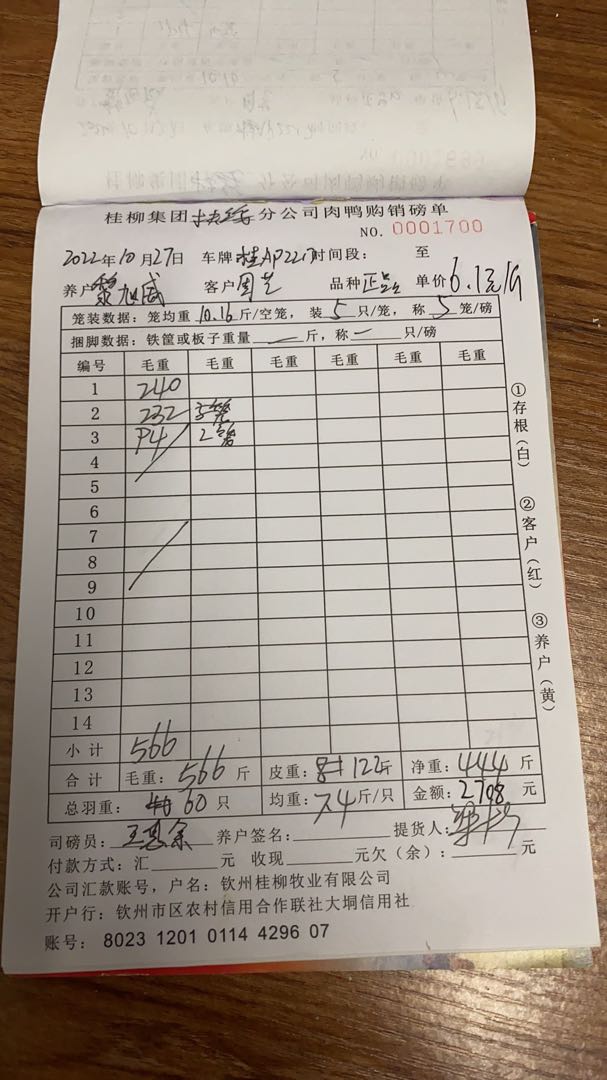 桂柳集团 分公司肉鸭购销磅单
NO. 0001700
2022年10月27日 车牌 桂AP22 时间段： 至
养户 黎旭成 客户 品种 正品 单价 6.1元/斤
笼装数据：笼均重 10.16 斤/空笼，装 5 只/笼，称 5 笼/磅
捆脚数据：铁筐或板子重量 — 斤，称 — 只/磅
编号 毛重 毛重 毛重 毛重 毛重 毛重
1 240
2 232 5笼
3 94 2笼
4
5
6
7
8
9
10
11
12
13
14
小计 566
合计 毛重：566 斤 皮重： 122斤 净重：444 斤
总羽重： 60 只 均重：7.4 斤/只 金额：2708 元
司磅员： 养户签名： 提货人：
付款方式：汇 元 收现 元欠（余）： 元
公司汇款账号，户名：钦州桂柳牧业有限公司
开户行：钦州市区农村信用合作联社大垌信用社
账号：8023 1201 0114 4296 07
①存根（白）
②客户（红）
③养户（黄）